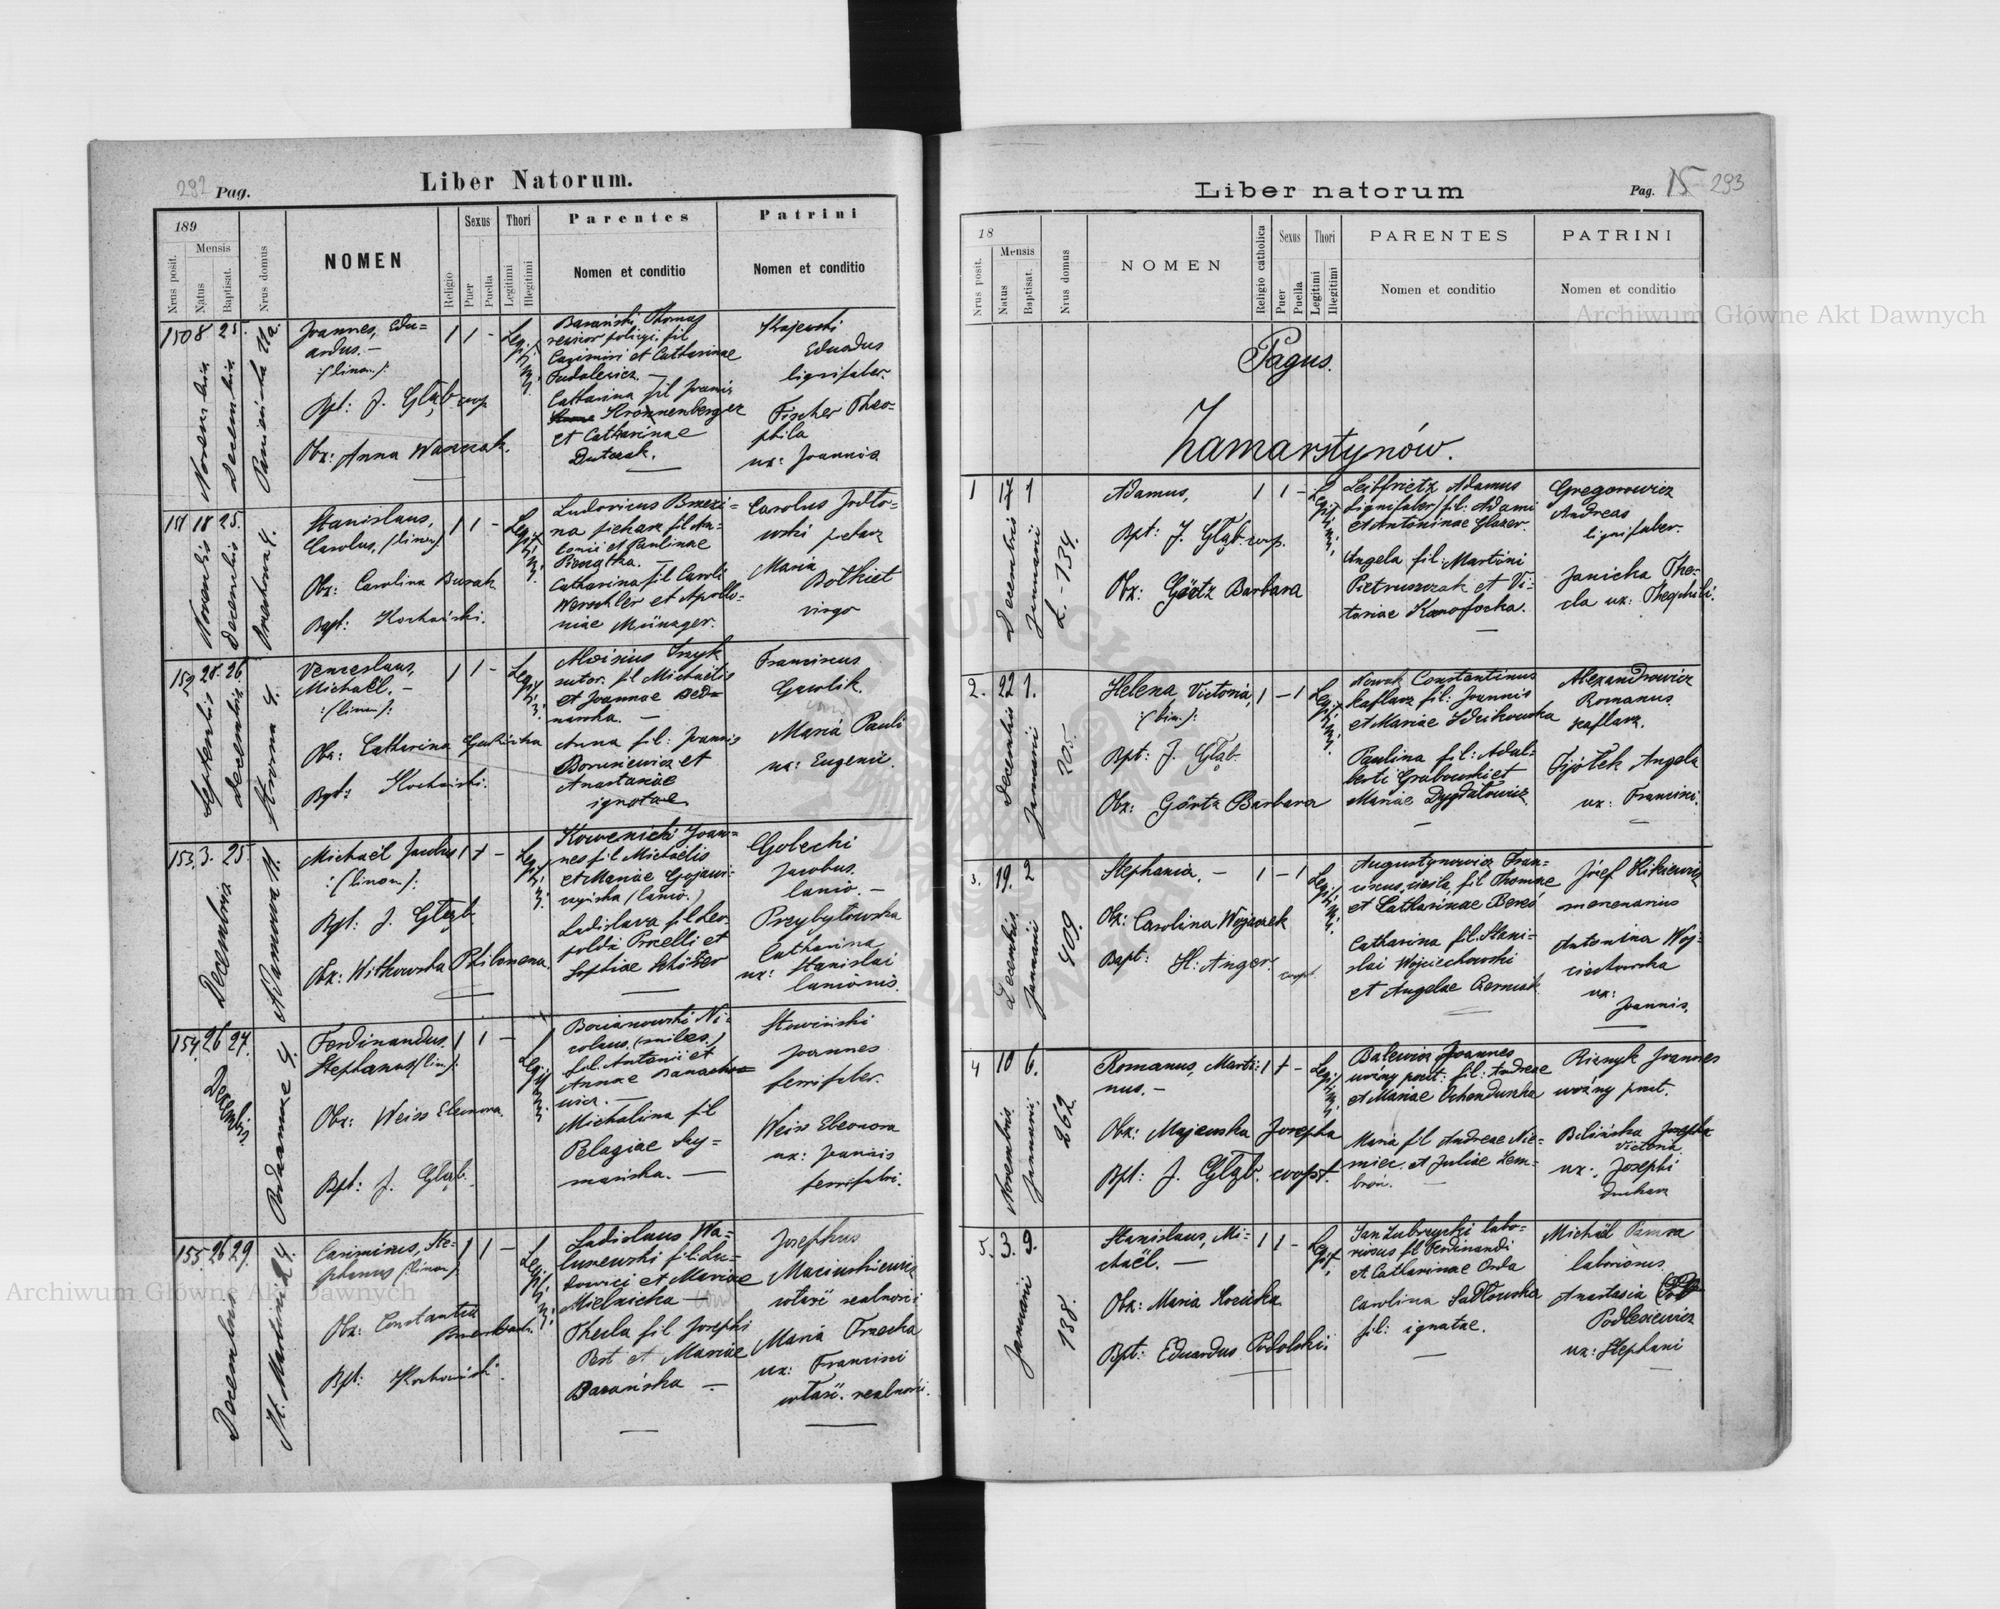 292 Pag.
Liber Natorum.
189
Nrus posit.
Mensis
Natus
Baptisat.
Nrus domus
NOMEN
Religio
Sexus
Puer
Puella
Thori
Legitimi
Illegitimi
Parentes
Nomen et conditio
Patrini
Nomen et conditio
150 8 25.
Novembris
Decembris
Joannes, Edu=
ardus. —
:/binom/:
Bpt: J. Głąb coop
Obx: Anna
1 1 -
Legitimi
Barański Thomas
fil
Casimiri et Catharinae
Catharina fil Joannis
Kronnenberger
et Catharinae
Krajewski
lignifaber.
Fischer Theo=
phila
ux: Joannis
151 18 25.
Novembris
Decembris
Stanislaus,
Carolus, (binom)
Obx: Carolina Burak
Bapt: Kochański.
1 1 -
Legitimi
Ludovicus Brzezi=
na piekarz fil An=
tonii et Paulinae
Catharina fil Caroli
et Apollo=
niae Münager.
Carolus
Maria
Bothiet
virgo
152 28. 26.
Septembris
Decembris
Venceslaus,
Michaël. —
:(binom):
Obx: Catharina
Bpt: Kochański.
1 1 -
Legitimi
Aloisius
sutor. fil Michaelis
et Joannae Bed=
narska. —
Anna fil: Joannis
Boruniewicz et
Anastasiae
ignotae
Franciscus
Gawlik.
Maria Pauli
ux: Eugenii.
153. 3. 25.
Decembris
Adamowa 11.
Michaël Jacobus
:(binom):
Bpt: J. Głąb.
Obx: Witkowska Philomena.
1 1 -
Legitimi
Joan=
nes fil Michaelis
et Mariae
(lanio.)
Ladislava fil Leo=
poldi et
Sophiae
Golecki
Jacobus.
lanio. —
Przybyłowska
Catharina
ux: Stanislai
lanionis.
154. 26 27.
Decembris
Ferdinandus
Stephanus (bin):
Obx: Weiss Eleonora.
Bpt: J. Głąb.
1 1 —
Legitimi
Bocianowski Ni=
colaus. (miles.)
fil. Antonii et
Annae Banache=
wicz. —
Michalina fil
Pelagiae Szy=
mańska. —
Słowiński
Joannes
ferrifaber.
Weiss Eleonora
ux: Joannis
ferrifabri.
155. 26 29.
Decembris
St. Martini 24.
Casimirus, Ste=
phanus (binom)
Obx: Constantia
Bpt: Kochański.
1 1 -
Legitimi
Ladislaus Wa=
luszewski fil: Lu=
dovici et Mariae
Mielnicka —
Thecla fil Josephi
Best et Mariae
Barańska —
Josephus
właśc realności
Maria Trzecka
ux: Francisci
właśc. realności.
Liber natorum
Pag. 15 293
18
Nrus posit.
Mensis
Natus
Baptisat.
Nrus domus
NOMEN
Religio catholica
Sexus
Puer
Puella
Thori
Legitimi
Illegitimi
PARENTES
Nomen et conditio
PATRINI
Nomen et conditio
Pagus.
Zamarstynów.
1 17 1
Decembris
Januarii
L. - 134.
Adamus,
Bpt: J. Głąb. coop.
Obx: Görtz Barbara
1 1 -
Legitimi
Leibfrietz Adamus
Lignifaber/fil: Adami
et Antoninae Glazer.
Angela fil: Martini
Pietruszczak et Vi=
toriae
Gregorowicz
Andreas
lignifaber.
Janicka The=
cla ux: Theophili.
2. 22 1.
Decembris
Januarii
205.
Helena Victoria,
:(bin.):
Bpt: J. Głąb.
Obx: Görtz Barbara
1 - 1
Legitimi
Nowak Constantinus
kaflarz fil: Joannis
et Mariae
Paulina fil: Adal=
berti Grabowski et
Mariae Dygdałowicz.
Alexandrowicz
Romanus
kaflarz.
Fijołek Angela
ux: Francisci.
3. 19. 2
Decembris
Januarii
409.
Stephania. —
Obx: Carolina Wojaczek
Bapt: St: Anger. coopt.
1 - 1
Legitimi
Augustynowicz Fran=
ciscus, cieśla, fil Thomae
et Catharinae Bereś
Catharina fil. Stani=
slai Wojciechowski
et Angelae Czerniak
Józef Hitkiewicz
mercenarius
Antonina Woj=
ciechowska
ux:
Joannis.
4 10 6.
Novembris
Januarii.
262.
Romanus, Marti=
nus. —
Obx: Majewska Josepha
Bpt: J. Głąb. coopt.
1 1 -
Legitimi
Balewicz Joannes
woźny poczt: fil: Andreae
et Mariae Ochenduszka
Maria fil Andreae Nie=
miec. et Juliae Zem=
broń. —
Riznyk Joannes
woźny poczt.
Bilińska Josepha
Victoria
ux: Josephi
5. 3. 9.
Januarii
188.
Stanislaus, Mi=
chaël. —
Obx: Maria Kozicka
Bpt: Eduardus Podolski.
1 1 -
Legit.
Jan Zubrzycki labo=
riosus fil Ferdinandi
et Catharinae Orda
Carolina Sadłowska
fil: ignotae.
Michał
laboriosus.
Anastasia
Podlesiewicz
ux: Stephani
Archiwum Główne Akt Dawnych
Archiwum Główne Akt Dawnych